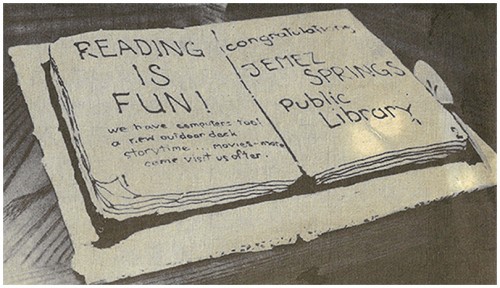 READING
IS
FUN!
we have computers too!
a new outdoor deck
storytime... movies... more
come visit us often.
congratulations
JEMEZ
SPRINGS
Public
Library